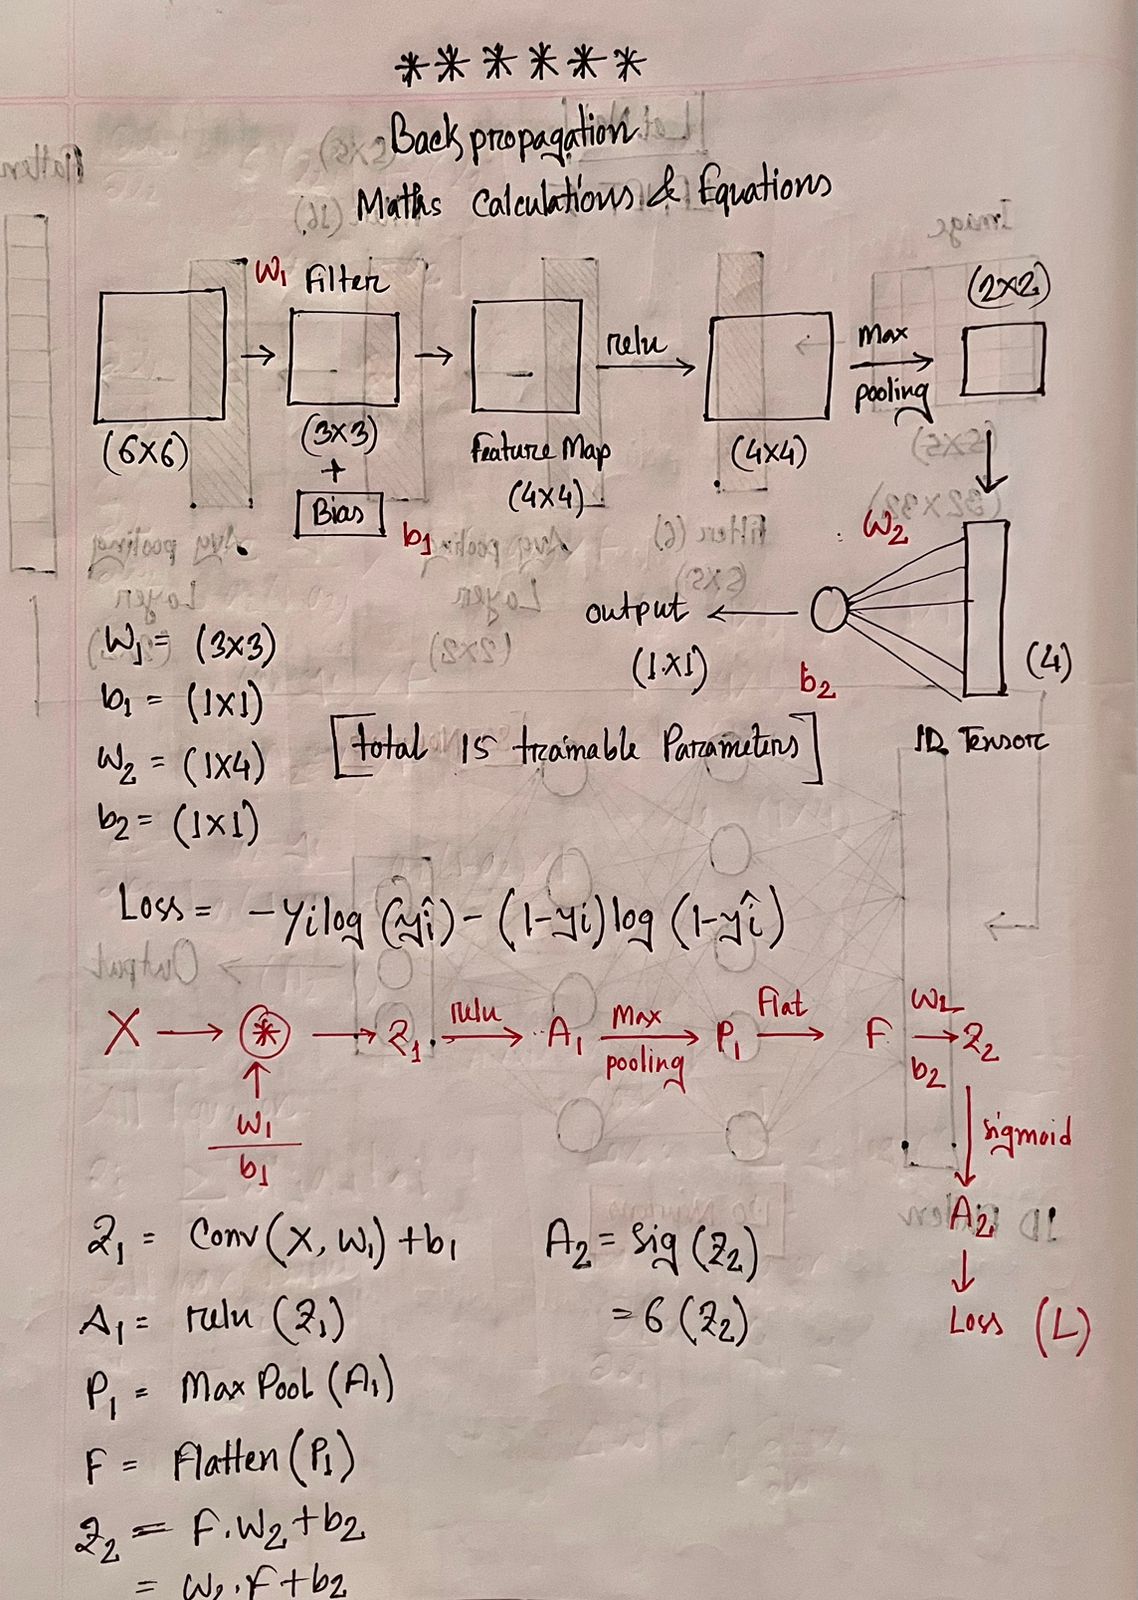 ******
Back propagation
Maths Calculations & Equations
W1 Filter
(2x2)
relu
Max
pooling
(6x6)
(3x3)
+
Bias
b1
Feature Map
(4x4)
(4x4)
W2
output
(1x1)
b2
(4)
1D Tensor
W1 = (3x3)
b1 = (1x1)
W2 = (1x4)
b2 = (1x1)
[Total 15 trainable Parameters]
Loss = -yi log (ŷi) - (1-yi) log (1-ŷi)
X → * → Z1 relu → A1 Max pooling → P1 Flat → F W2 b2 → Z2
W1
b1
sigmoid
A2
Loss (L)
Z1 = Conv (X, W1) + b1
A1 = relu (Z1)
P1 = Max Pool (A1)
F = Flatten (P1)
Z2 = F.W2 + b2
= W2.F + b2
A2 = Sig (Z2)
= 6 (Z2)